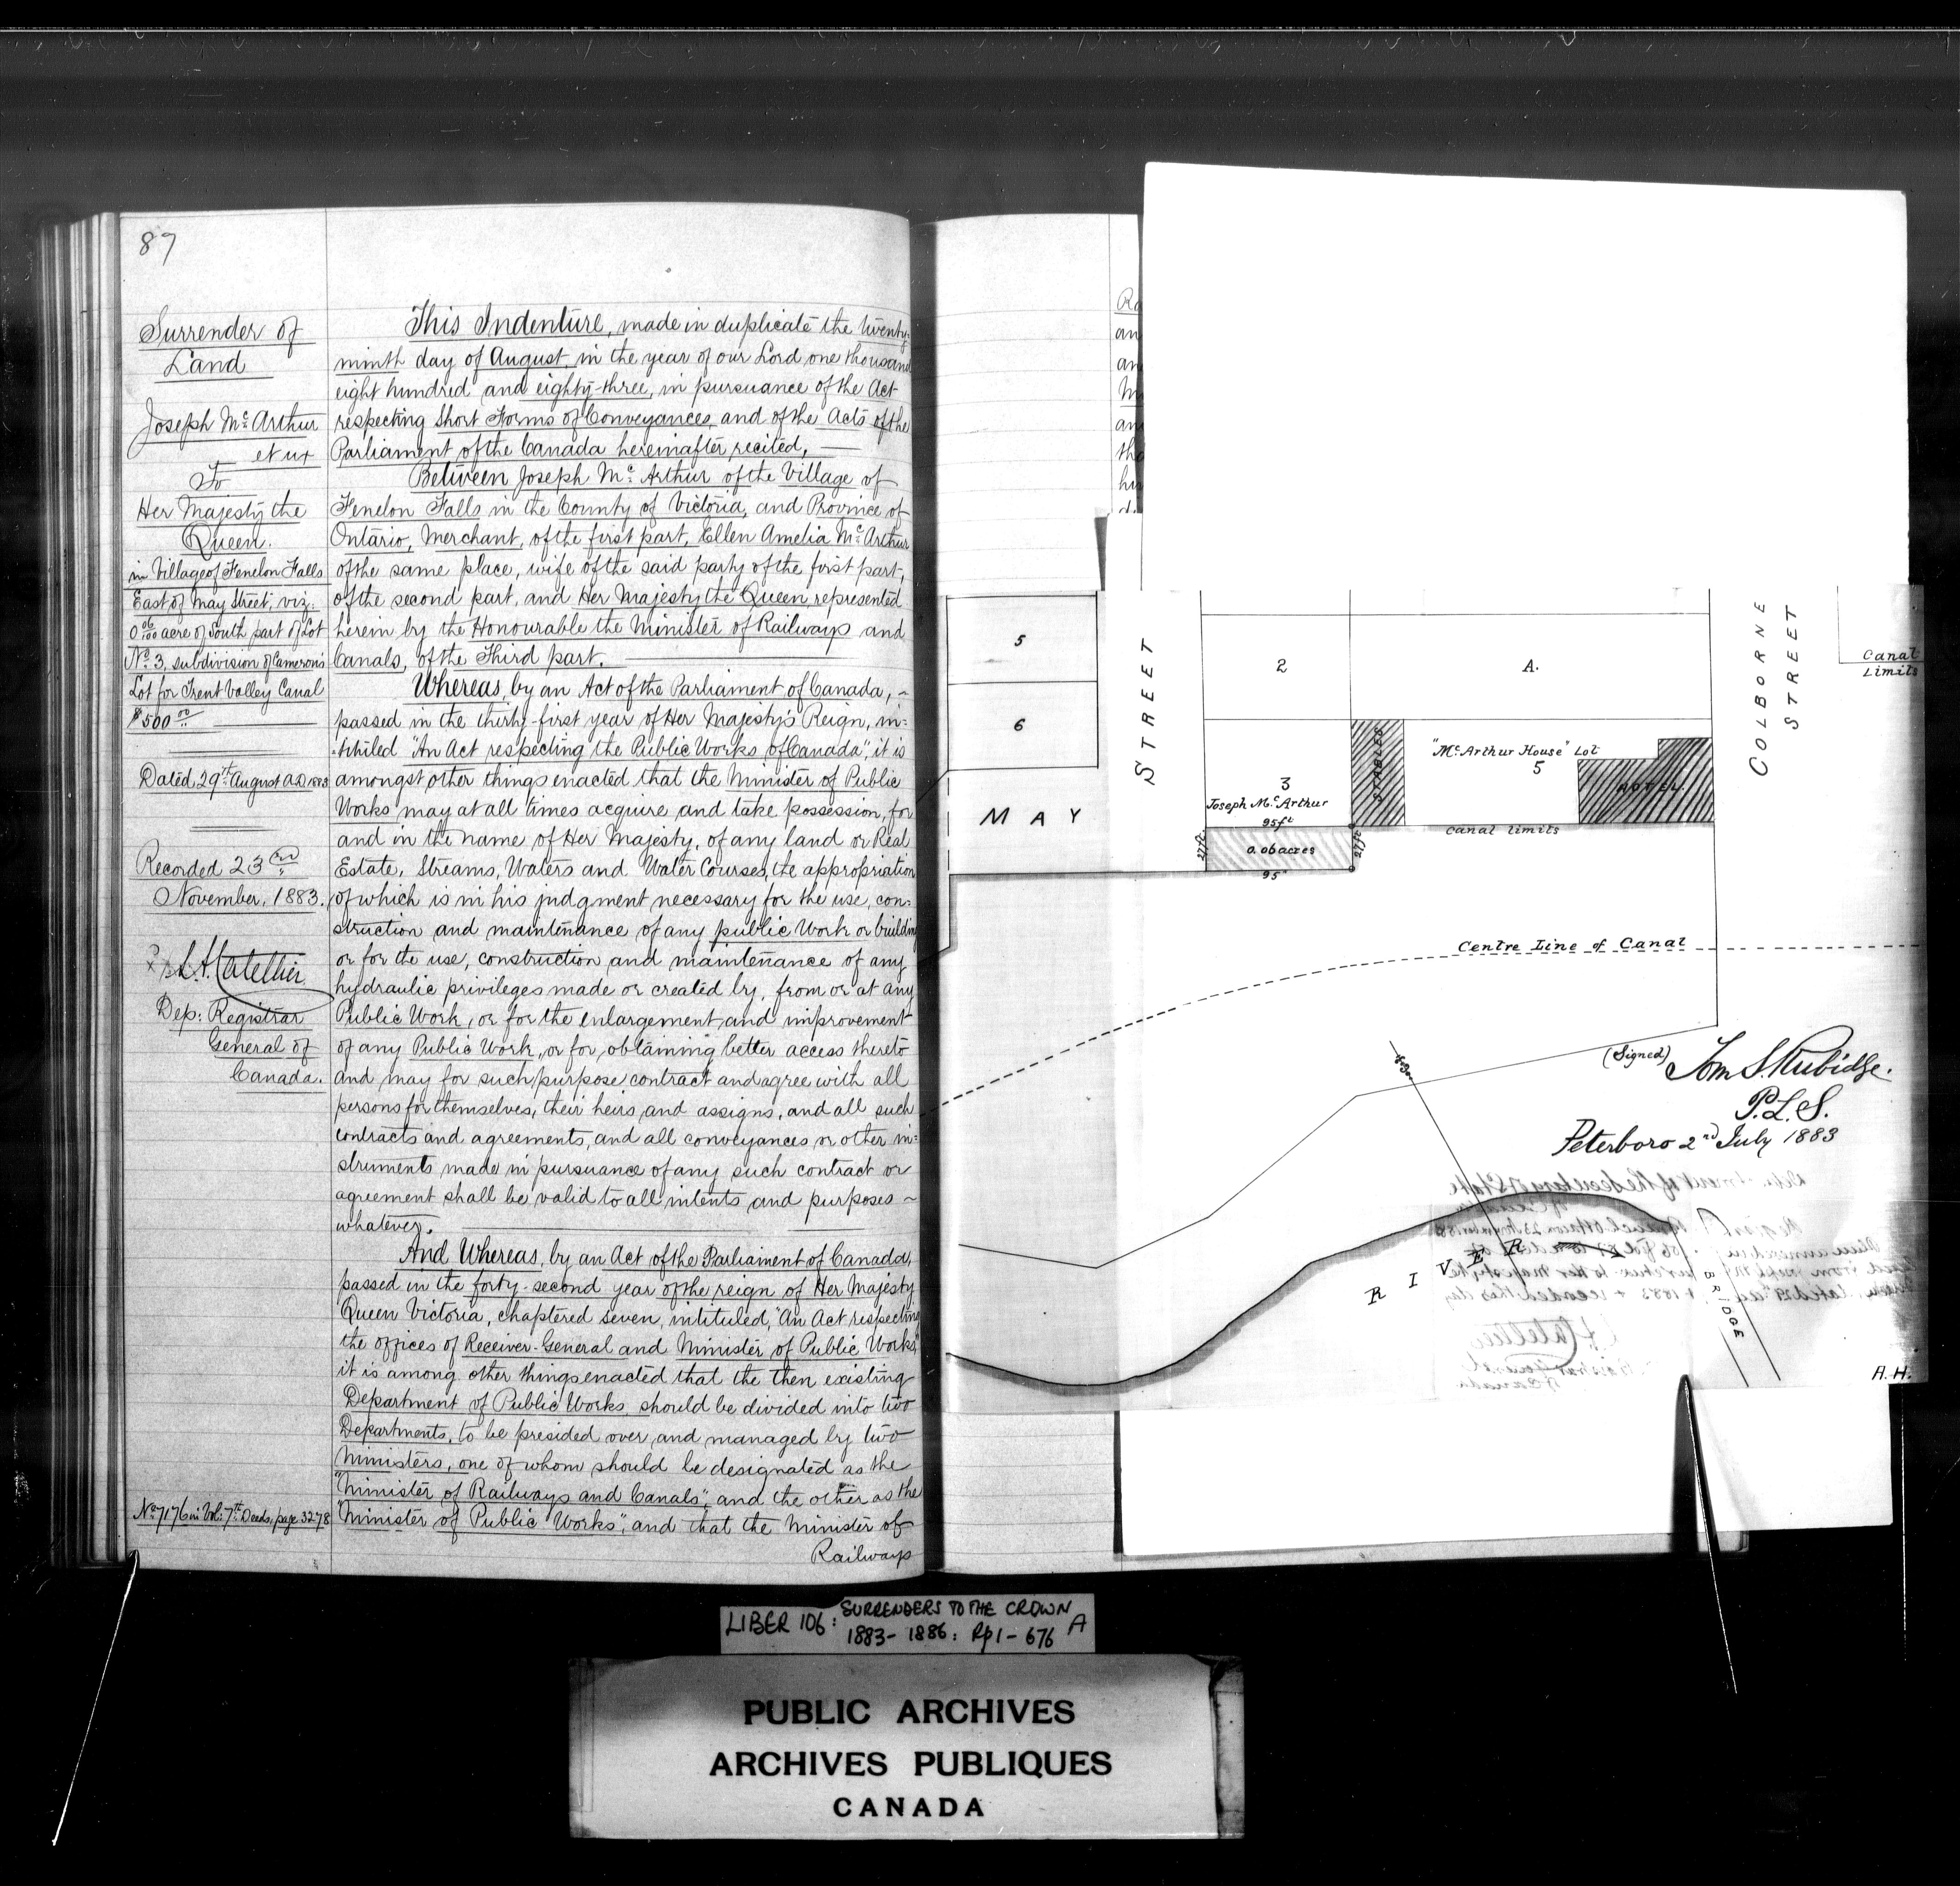 87
Surrender of
Land
Joseph Mc Arthur
et ux
To
Her Majesty the
Queen.
in Village of Fenelon Falls
East of May Street, viz.
0 06/100 acre of South part of Lot
No. 3, subdivision of Cameron's
Lot for Trent Valley Canal
$500 00
Dated 29th August A.D. 1883
Recorded 23rd
November, 1883.
L.A. Catellier
Dep: Registrar
General of
Canada.
No 7176 in Vol: 7th Deeds, page 3278
This Indenture, made in duplicate the twenty-
ninth day of August, in the year of our Lord one thousand
eight hundred and eighty-three, in pursuance of the Act
respecting Short Forms of Conveyances, and of the Acts of the
Parliament of the Canada hereinafter recited,
Between Joseph Mc Arthur of the Village of
Fenelon Falls in the County of Victoria, and Province of
Ontario, Merchant, of the first part, Ellen Amelia Mc Arthur
of the same place, wife of the said party of the first part,
of the second part, and Her Majesty the Queen, represented
herein by the Honourable the Minister of Railways and
Canals, of the Third part.
Whereas, by an Act of the Parliament of Canada, ~
passed in the thirty-first year of Her Majesty's Reign, in=
=tituled "An Act respecting the Public Works of Canada", it is
amongst other things enacted that the Minister of Public
Works may at all times acquire and take possession, for
and in the name of Her Majesty, of any land or Real
Estate, Streams, Waters and Water Courses, the appropriation
of which is in his judgment necessary for the use, con=
struction and maintenance of any public Work or building
or for the use, construction and maintenance of any
hydraulic privileges made or created by, from or at any
Public Work, or for the enlargement and improvement
of any Public Work, or for obtaining better access thereto
and may for such purpose contract and agree with all
persons for themselves, their heirs and assigns, and all such
contracts and agreements, and all conveyances or other in=
struments made in pursuance of any such contract or
agreement shall be valid to all intents and purposes ~
whatever.
And Whereas, by an Act of the Parliament of Canada,
passed in the forty-second year of the reign of Her Majesty
Queen Victoria, chaptered seven, intituled, "An Act respecting
the offices of Receiver-General and Minister of Public Works",
it is among other things enacted that the then existing
Department of Public Works should be divided into two
Departments, to be presided over and managed by two
Ministers, one of whom should be designated as the
"Minister of Railways and Canals", and the other as the
"Minister of Public Works", and that the Minister of
Railways
an
an
an
tho
5
6
MAY
STREET
2
A.
3
Joseph Mc Arthur
95 ft
27 ft
0.06 acres
27 ft
95"
STABLES
"Mc Arthur House" Lot
5
HOTEL.
Canal limits
COLBORNE
STREET
Canal
Limits
Centre Line of Canal
(Signed) Tom S. Rubidge.
P.L.S.
Peterboro 2nd July 1883
RIVER
BRIDGE
A.H.
LIBER 106: SURRENDERS TO THE CROWN A
1883-1886: Rp1-676
PUBLIC ARCHIVES
ARCHIVES PUBLIQUES
CANADA